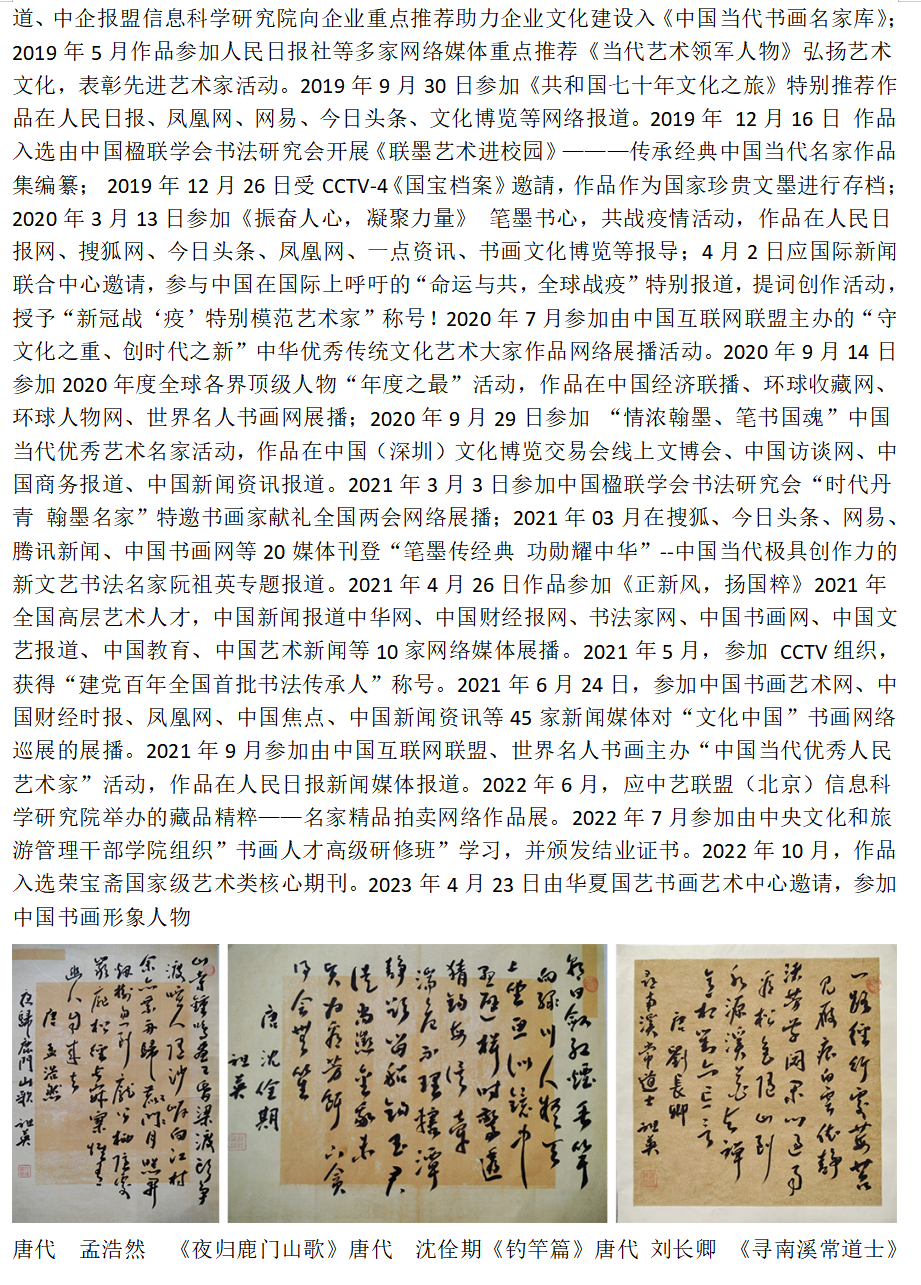 道、中企报盟信息科学研究院向企业重点推荐助力企业文化建设入《中国当代书画名家库》；
2019 年 5 月作品参加人民日报社等多家网络媒体重点推荐《当代艺术领军人物》弘扬艺术
文化，表彰先进艺术家活动。2019 年 9 月 30 日参加《共和国七十年文化之旅》特别推荐作
品在人民日报、凤凰网、网易、今日头条、文化博览等网络报道。2019 年 12 月 16 日 作品
入选由中国楹联学会书法研究会开展《联墨艺术进校园》———传承经典中国当代名家作品
集编纂； 2019 年 12 月 26 日受 CCTV-4《国宝档案》邀請，作品作为国家珍贵文墨进行存档；
2020 年 3 月 13 日参加《振奋人心，凝聚力量》 笔墨书心，共战疫情活动，作品在人民日
报网、搜狐网、今日头条、凤凰网、一点资讯、书画文化博览等报导；4 月 2 日应国际新闻
联合中心邀请，参与中国在国际上呼吁的“命运与共，全球战疫”特别报道，提词创作活动，
授予“新冠战‘疫’特别模范艺术家”称号！2020 年 7 月参加由中国互联网联盟主办的“守
文化之重、创时代之新”中华优秀传统文化艺术大家作品网络展播活动。2020 年 9 月 14 日
参加 2020 年度全球各界顶级人物“年度之最”活动，作品在中国经济联播、环球收藏网、
环球人物网、世界名人书画网展播；2020 年 9 月 29 日参加 “情浓翰墨、笔书国魂”中国
当代优秀艺术名家活动，作品在中国（深圳）文化博览交易会线上文博会、中国访谈网、中
国商务报道、中国新闻资讯报道。2021 年 3 月 3 日参加中国楹联学会书法研究会“时代丹
青 翰墨名家”特邀书画家献礼全国两会网络展播；2021 年 03 月在搜狐、今日头条、网易、
腾讯新闻、中国书画网等 20 媒体刊登“笔墨传经典 功勋耀中华”--中国当代极具创作力的
新文艺书法名家阮祖英专题报道。2021 年 4 月 26 日作品参加《正新风，扬国粹》2021 年
全国高层艺术人才，中国新闻报道中华网、中国财经报网、书法家网、中国书画网、中国文
艺报道、中国教育、中国艺术新闻等 10 家网络媒体展播。2021 年 5 月，参加 CCTV 组织，
获得“建党百年全国首批书法传承人”称号。2021 年 6 月 24 日，参加中国书画艺术网、中
国财经时报、凤凰网、中国焦点、中国新闻资讯等 45 家新闻媒体对“文化中国”书画网络
巡展的展播。2021 年 9 月参加由中国互联网联盟、世界名人书画主办“中国当代优秀人民
艺术家”活动，作品在人民日报新闻媒体报道。2022 年 6 月，应中艺联盟（北京）信息科
学研究院举办的藏品精粹——名家精品拍卖网络作品展。2022 年 7 月参加由中央文化和旅
游管理干部学院组织”书画人才高级研修班”学习，并颁发结业证书。2022 年 10 月，作品
入选荣宝斋国家级艺术类核心期刊。2023 年 4 月 23 日由华夏国艺书画艺术中心邀请，参加
中国书画形象人物
唐 孟浩然
夜歸鹿門山歌 祖英
唐 沈佺期
祖英
唐 劉長卿
尋南溪常道士 祖英
唐代 孟浩然 《夜归鹿门山歌》唐代 沈佺期《钓竿篇》唐代 刘长卿 《寻南溪常道士》